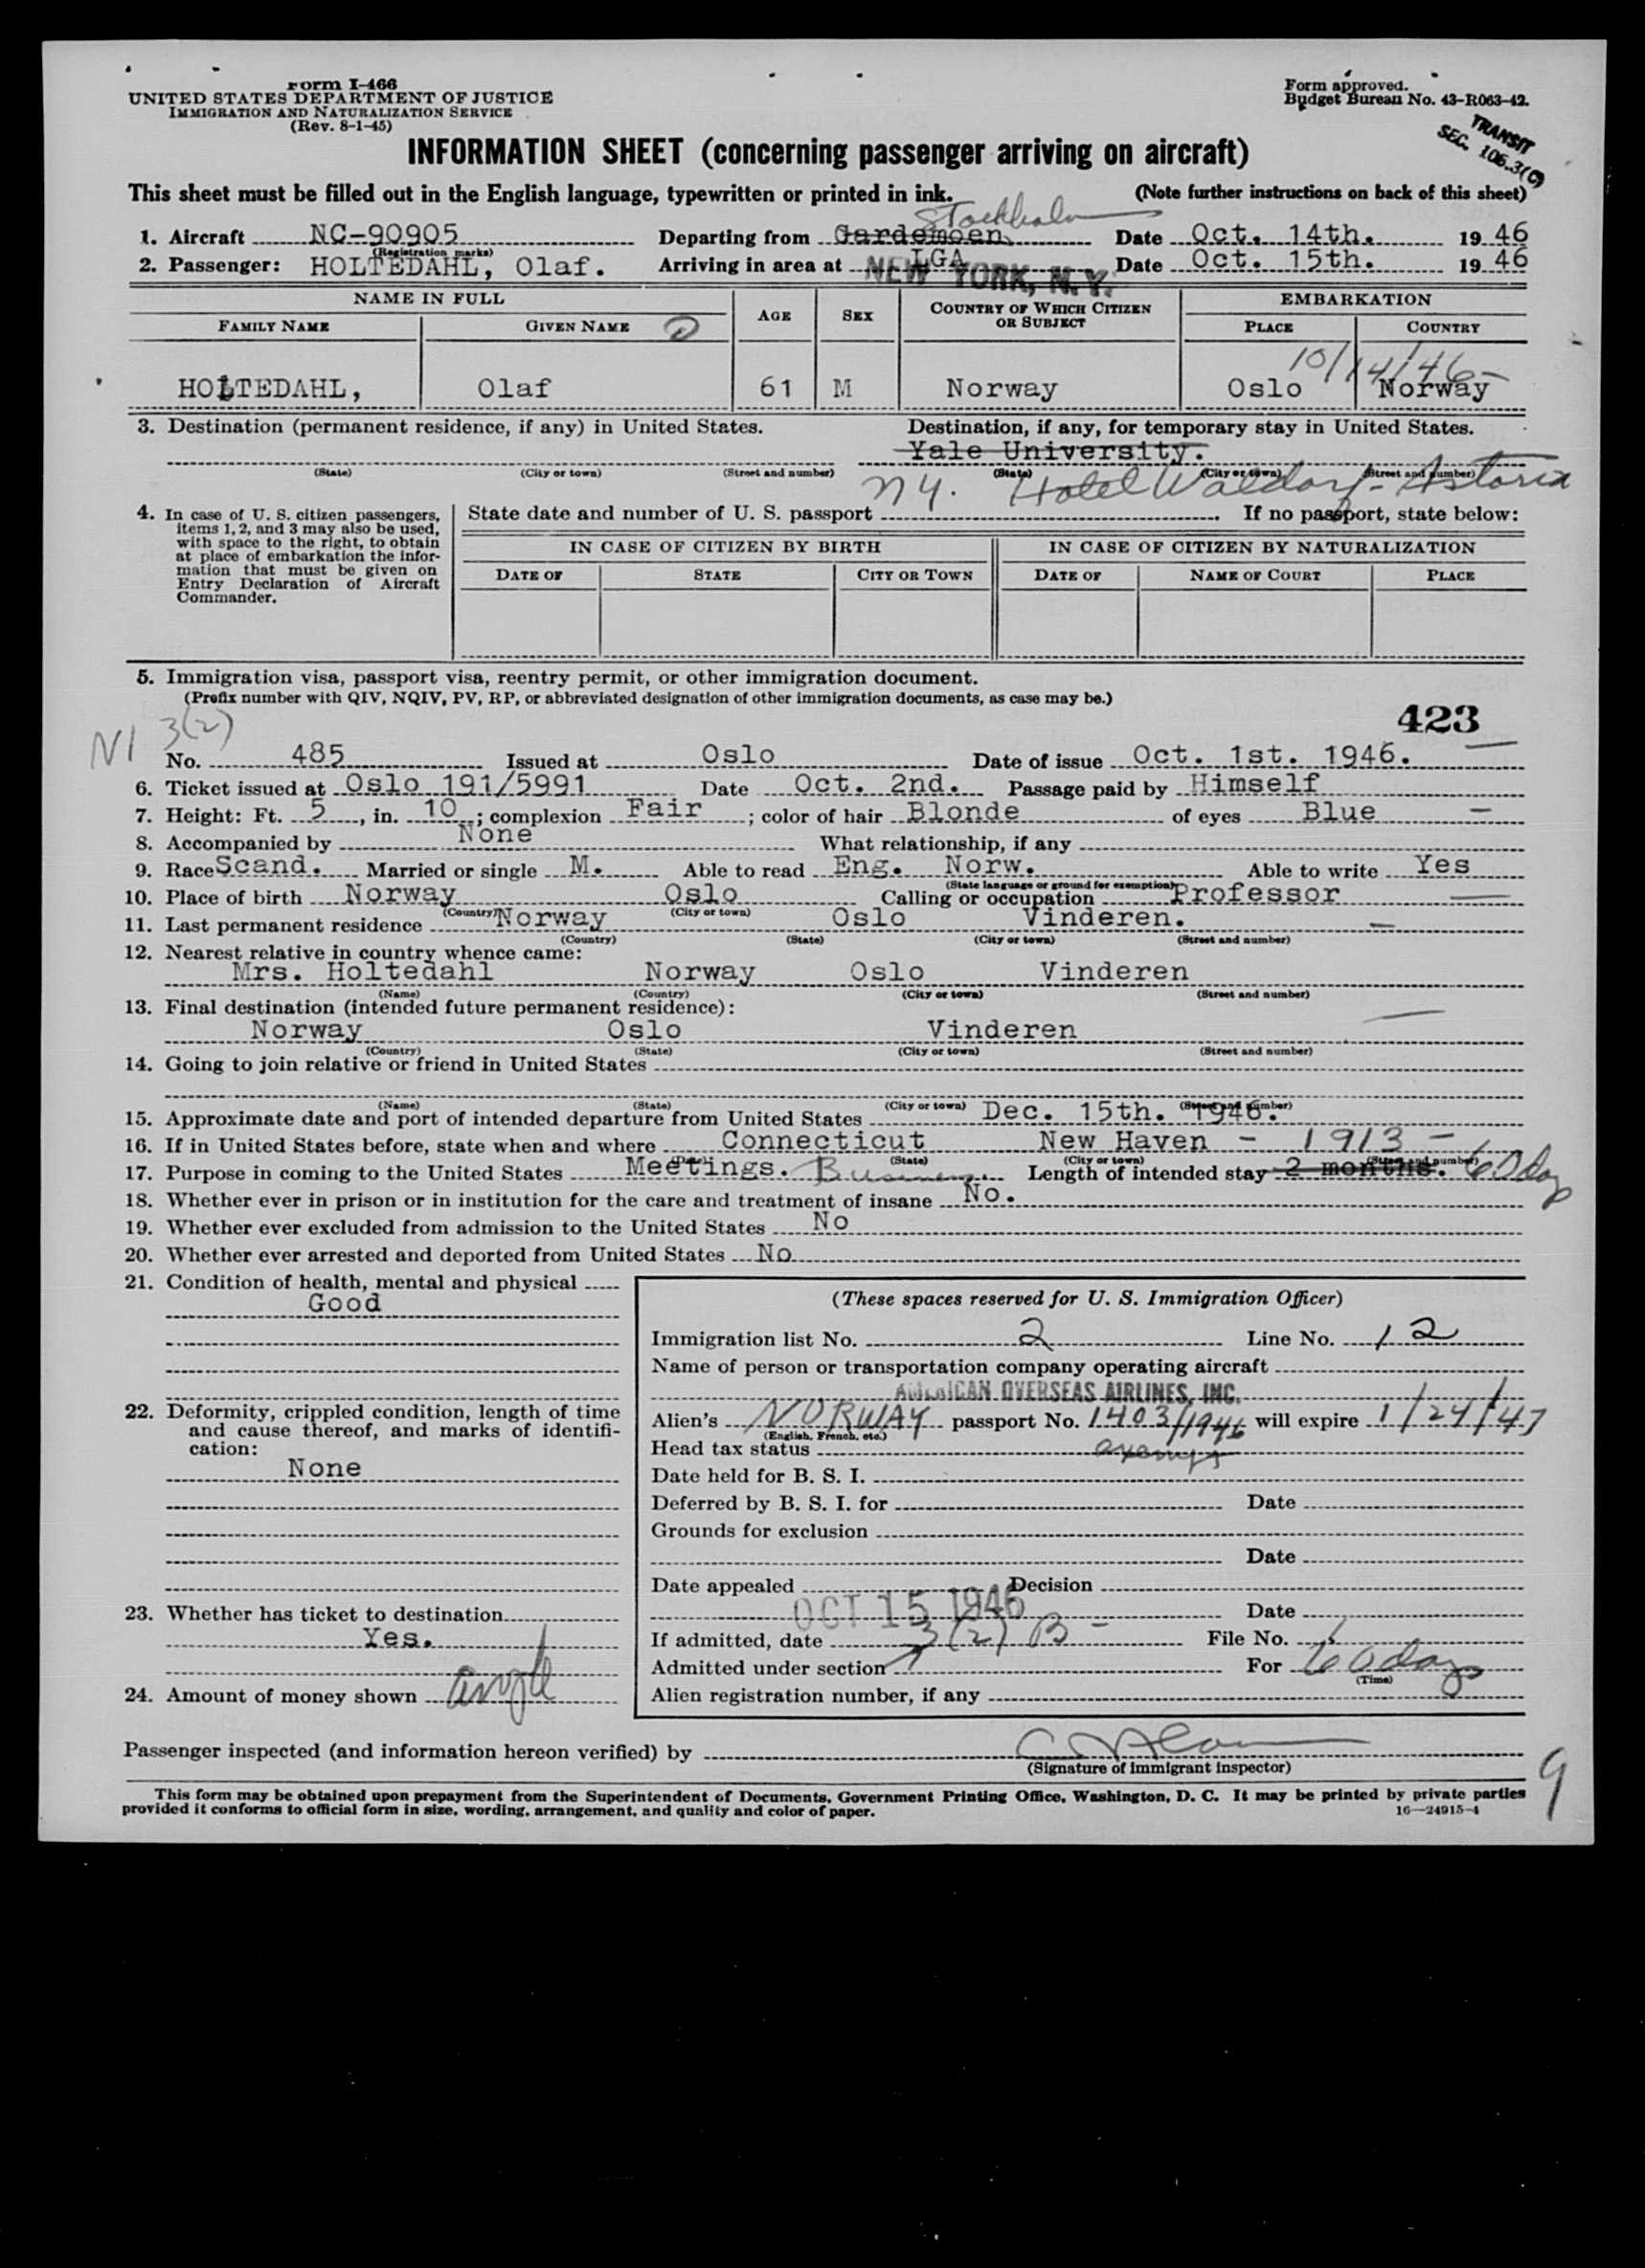 Form I-466
UNITED STATES DEPARTMENT OF JUSTICE
IMMIGRATION AND NATURALIZATION SERVICE
(Rev. 8-1-45)
Form approved.
Budget Bureau No. 43-R063-42.
TRANSIT
SEC. 106.3(C)
INFORMATION SHEET (concerning passenger arriving on aircraft)
This sheet must be filled out in the English language, typewritten or printed in ink. (Note further instructions on back of this sheet)
Stockholm
1. Aircraft NC-90905 Departing from Gardemoen Date Oct. 14th. 19 46
(Registration marks)
2. Passenger: HOLTEDAHL, Olaf. Arriving in area at LGA NEW YORK, N.Y. Date Oct. 15th. 19 46
NAME IN FULL AGE SEX COUNTRY OF WHICH CITIZEN OR SUBJECT EMBARKATION
FAMILY NAME GIVEN NAME PLACE COUNTRY
10/14/46
HOLTEDAHL, Olaf 61 M Norway Oslo Norway
3. Destination (permanent residence, if any) in United States. Destination, if any, for temporary stay in United States.
Yale University.
(State) (City or town) (Street and number) (State) (City or town) (Street and number)
NY. Hotel Waldorf-Astoria
4. In case of U. S. citizen passengers, items 1, 2, and 3 may also be used, with space to the right, to obtain at place of embarkation the information that must be given on Entry Declaration of Aircraft Commander.
State date and number of U. S. passport . If no passport, state below:
IN CASE OF CITIZEN BY BIRTH IN CASE OF CITIZEN BY NATURALIZATION
DATE OF STATE CITY OR TOWN DATE OF NAME OF COURT PLACE
5. Immigration visa, passport visa, reentry permit, or other immigration document.
(Prefix number with QIV, NQIV, PV, RP, or abbreviated designation of other immigration documents, as case may be.)
423
NI 3(2)
No. 485 Issued at Oslo Date of issue Oct. 1st. 1946.
6. Ticket issued at Oslo 191/5991 Date Oct. 2nd. Passage paid by Himself
7. Height: Ft. 5, in. 10; complexion Fair; color of hair Blonde of eyes Blue
8. Accompanied by None What relationship, if any
9. Race Scand. Married or single M. Able to read Eng. Norw. Able to write Yes
(State language or ground for exemption)
10. Place of birth Norway Oslo Calling or occupation Professor
(Country) (City or town)
11. Last permanent residence Norway Oslo Vinderen.
(Country) (State) (City or town) (Street and number)
12. Nearest relative in country whence came:
Mrs. Holtedahl Norway Oslo Vinderen
(Name) (Country) (City or town) (Street and number)
13. Final destination (intended future permanent residence):
Norway Oslo Vinderen
(Country) (State) (City or town) (Street and number)
14. Going to join relative or friend in United States
(Name) (State) (City or town) (Street and number)
15. Approximate date and port of intended departure from United States Dec. 15th. 1946.
16. If in United States before, state when and where Connecticut New Haven - 1913 -
(Date) (State) (City or town) (Street and number)
17. Purpose in coming to the United States Meetings. Business. Length of intended stay 2 months. 60 days
18. Whether ever in prison or in institution for the care and treatment of insane No.
19. Whether ever excluded from admission to the United States No
20. Whether ever arrested and deported from United States No
21. Condition of health, mental and physical
Good
22. Deformity, crippled condition, length of time and cause thereof, and marks of identification:
None
23. Whether has ticket to destination
Yes.
24. Amount of money shown ample
(These spaces reserved for U. S. Immigration Officer)
Immigration list No. 2 Line No. 12
Name of person or transportation company operating aircraft
AMERICAN OVERSEAS AIRLINES, INC.
Alien's NORWAY passport No. 1403/1946 will expire 1/24/47
(English, French, etc.)
Head tax status exempt
Date held for B. S. I.
Deferred by B. S. I. for Date
Grounds for exclusion
Date
Date appealed Decision
OCT 15 1946 Date
If admitted, date 3(2) B - File No.
Admitted under section For 60 days
(Time)
Alien registration number, if any
Passenger inspected (and information hereon verified) by
(Signature of immigrant inspector)
9
This form may be obtained upon prepayment from the Superintendent of Documents, Government Printing Office, Washington, D. C. It may be printed by private parties
provided it conforms to official form in size, wording, arrangement, and quality and color of paper. 16—24915-4